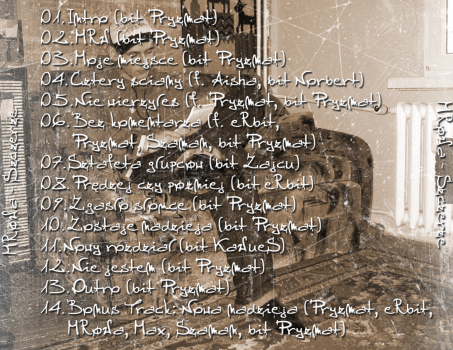 01. Intro (bit Pryzmat)
02. MRW (bit Pryzmat)
03. Moje miejsce (bit Pryzmat)
04. Cztery ściany (f. Aisha, bit Norbert)
05. Nie wierzyłeś (f. Pryzmat, bit Pryzmat)
06. Bez komentarza (f. eRbit,
Pryzmat, Szaman, bit Pryzmat)
07. Sztafeta głupców (bit Zajcu)
08. Prędzej czy później (bit eRbit)
09. Zgasło słońce (bit Pryzmat)
10. Zostaje nadzieja (bit Pryzmat)
11. Nowy rozdział (bit KaZueS)
12. Nie jestem (bit Pryzmat)
13. Outro (bit Pryzmat)
14. Bonus Track: Nowa nadzieja (Pryzmat, eRbit,
Max, Szaman, bit Pryzmat)
Szczerze
Szczerze